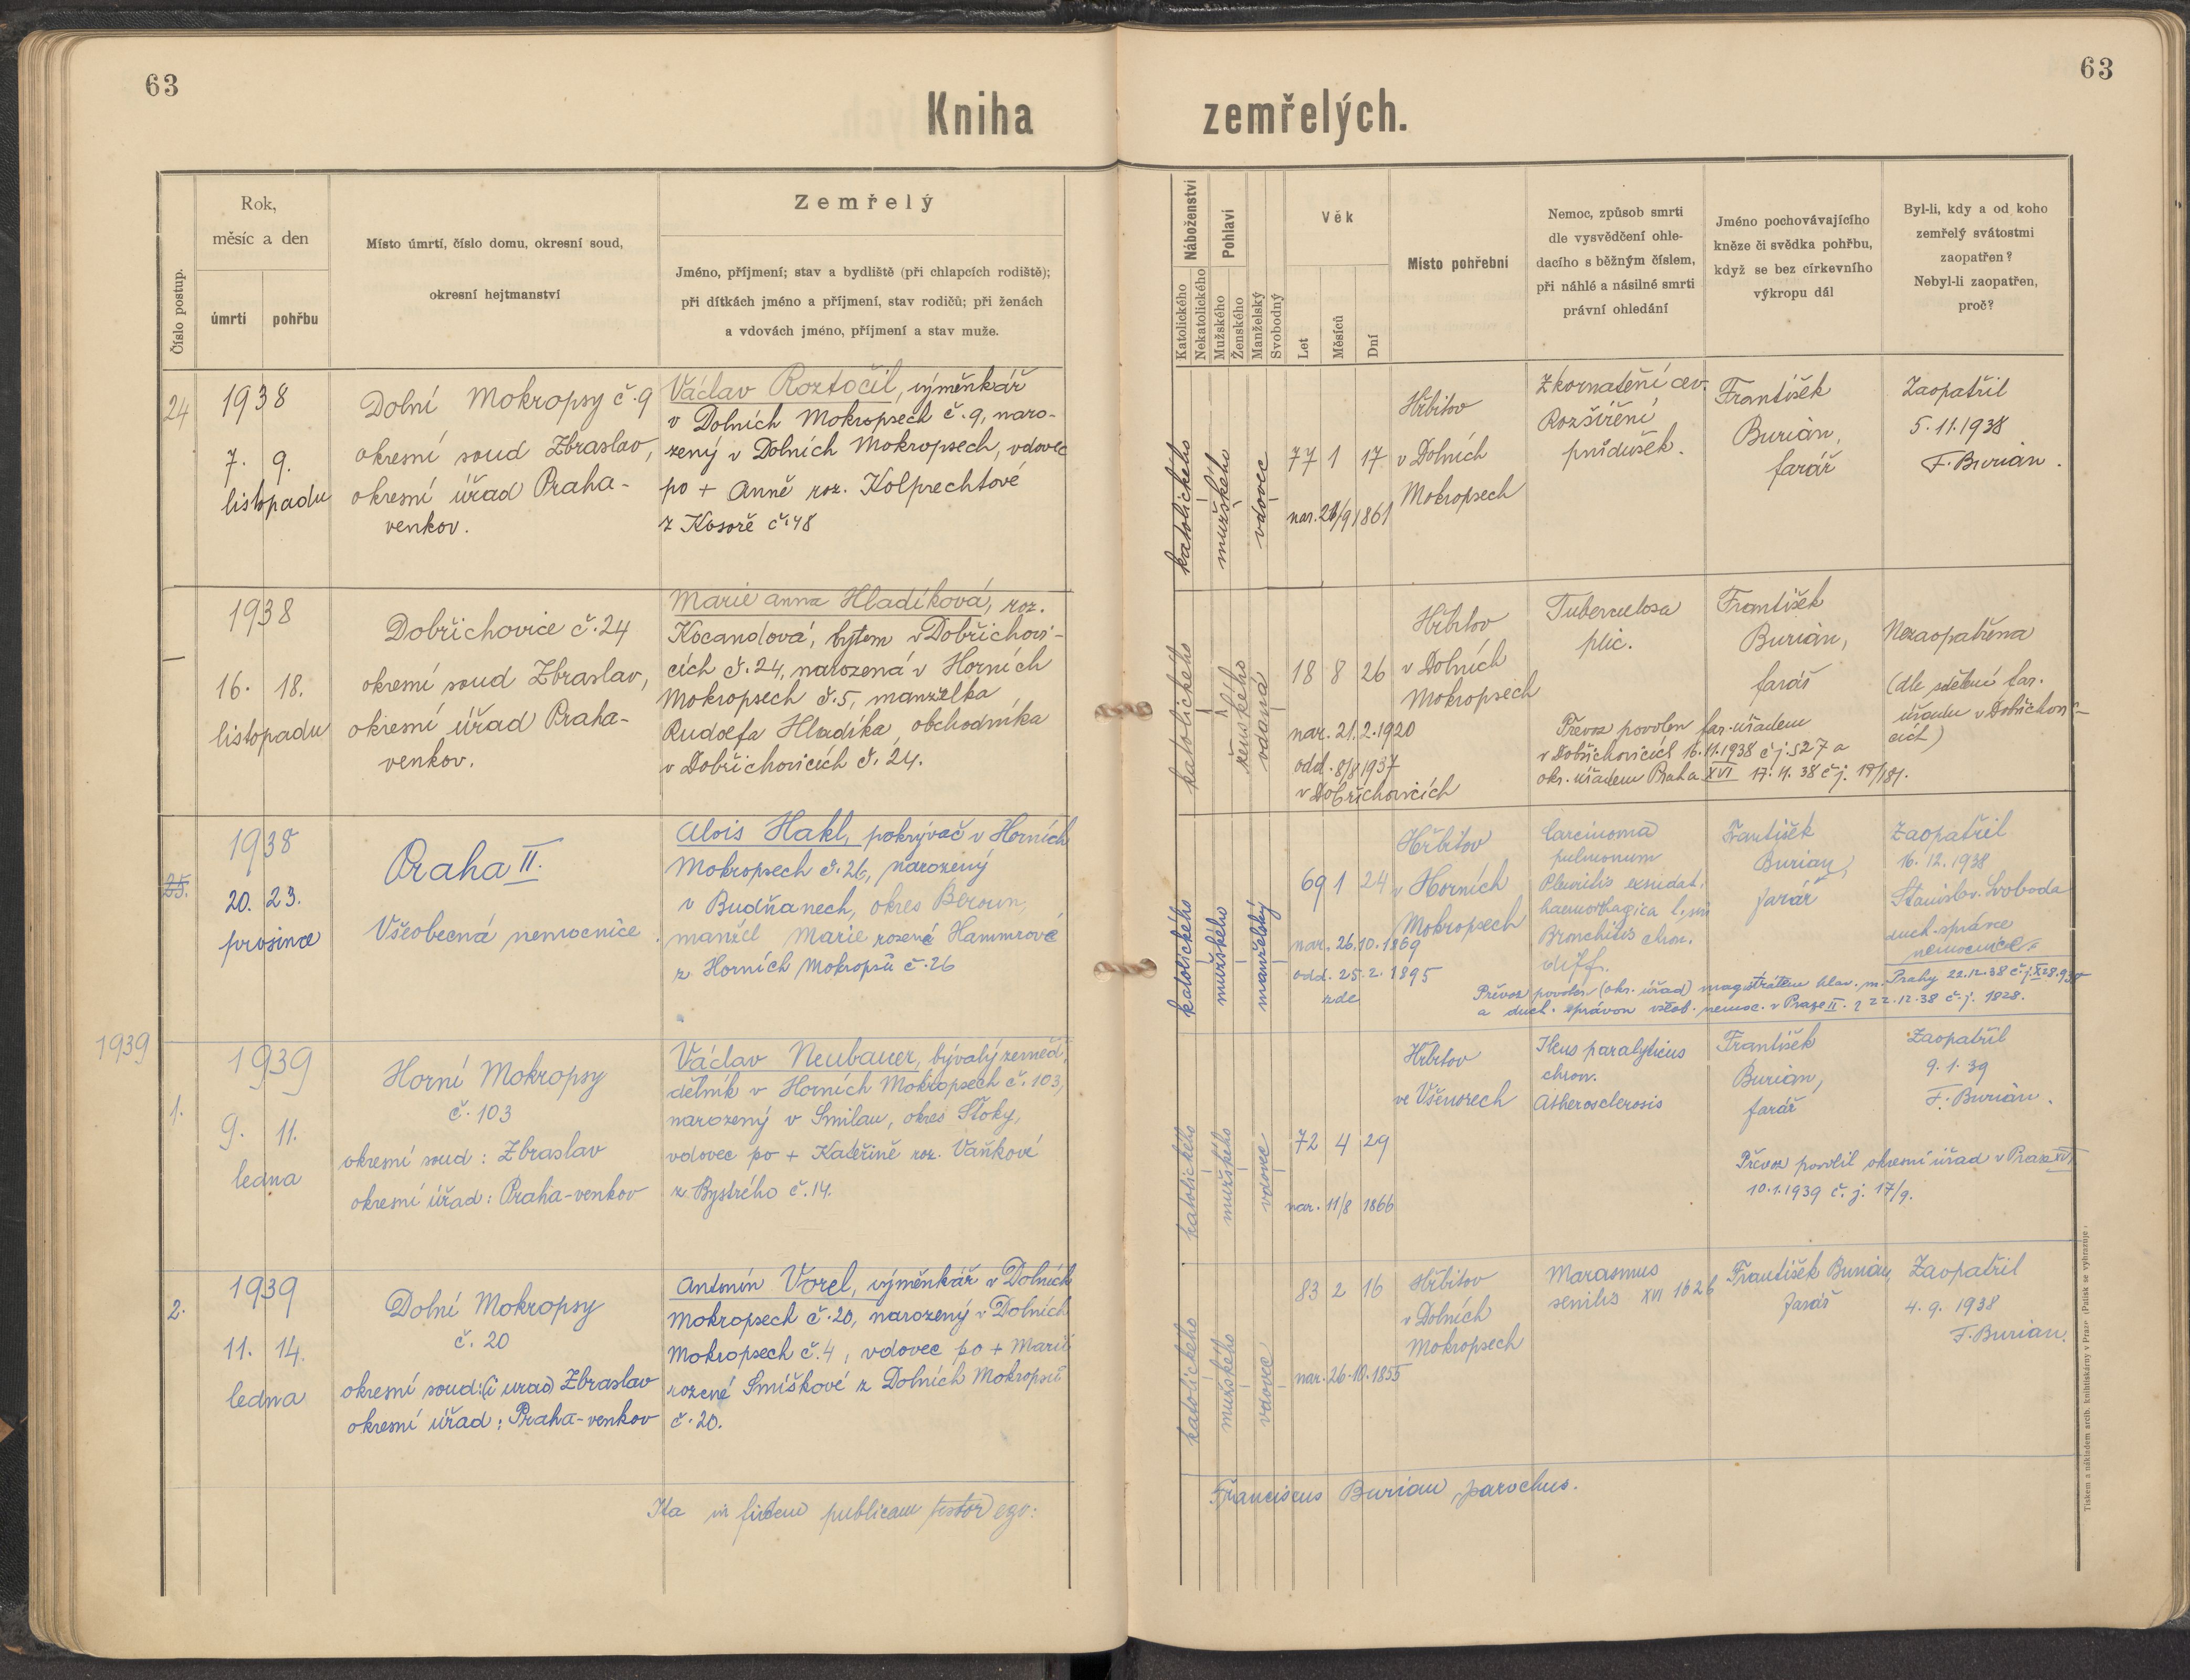 63
63
Kniha zemřelých.
Číslo postup.
Rok,
měsíc a den
úmrtí
pohřbu
Místo úmrtí, číslo domu, okresní soud,
okresní hejtmanství
Zemřelý
Jméno, příjmení; stav a bydliště (při chlapcích rodiště);
při dítkách jméno a příjmení, stav rodičů; při ženách
a vdovách jméno, příjmení a stav muže.
Náboženství
Katolického
Nekatolického
Pohlaví
Mužského
Ženského
Manželský
Svobodný
Věk
Let
Měsíců
Dní
Místo pohřební
Nemoc, způsob smrti
dle vysvědčení ohle-
dacího s běžným číslem,
při náhlé a násilné smrti
právní ohledání
Jméno pochovávajícího
kněze či svědka pohřbu,
když se bez církevního
výkropu dál
Byl-li, kdy a od koho
zemřelý svátostmi
zaopatřen?
Nebyl-li zaopatřen,
proč?
24
1938
7. 9.
listopadu
Dolní Mokropsy č.9
okresní soud Zbraslav,
okresní úřad Praha-
venkov.
Václav Roztočil, výměnkář
v Dolních Mokropsech č.9, naro-
zený v Dolních Mokropsech, vdovec
po + Anně roz. Kolprechtové
z Kosoře č.48
katolického
mužského
vdovec
77 1 17
nar. 21/9 1861
Hřbitov
v Dolních
Mokropsech
Zkornatění cev.
Rozšíření
průdušek.
František
Burian,
farář
Zaopatřil
5.11.1938
F. Burian.
—
1938
16. 18.
listopadu
Dobřichovice č.24
okresní soud Zbraslav,
okresní úřad Praha-
venkov.
Marie Anna Hladíková, roz.
Kocandová, bytem v Dobřichovi-
cích č.24, narozená v Horních
Mokropsech č.5, manželka
Rudolfa Hladíka, obchodníka
v Dobřichovicích č.24.
katolického
ženského
vdaná
18 8 26
nar. 21.2.1920
odd. 8/8 1937
v Dobřichovicích
Hřbitov
v Dolních
Mokropsech
Tuberculosa
plic.
František
Burian,
farář
Nezaopatřena
(dle sdělení far.
úřadu v Dobřichovi-
cích)
Převoz povolen far. úřadem
v Dobřichovicích 16.11.1938 č.j. 527 a
okr. úřadem Praha XVI 17.11.38 č.j. 17/181.
25.
1938
20. 23.
prosince
Praha II.
Všeobecná nemocnice.
Alois Hakl, pokrývač v Horních
Mokropsech č.26, narozený
v Budňanech, okres Beroun,
manžel Marie rozené Hammrové
z Horních Mokropsů č.26
katolického
mužského
manželský
69 1 24
nar. 26.10.1869
odd. 25.2.1895
zde
Hřbitov
v Horních
Mokropsech
Carcinoma
pulmonum
Pleuritis exsudat.
haemorhagica
Bronchitis chron.
diff.
František
Burian,
farář
Zaopatřil
16.12.1938
Stanislav Svoboda
duch. správce
nemocnice
Převoz povolen (okr. úřad) magistrátem hlav. m. Prahy 22.12.38
a duch. správou všeob. nemoc. v Praze II. z 22.12.38 č.j. 1828.
1939
1.
1939
9. 11.
ledna
Horní Mokropsy
č.103
okresní soud: Zbraslav
okresní úřad: Praha-venkov
Václav Neubauer, bývalý zeměd.
dělník v Horních Mokropsech č.103,
narozený v Smilau, okres Štoky,
vdovec po + Kateřině roz. Vaňkové
z Bystrého č.14.
katolického
mužského
vdovec
72 4 29
nar. 11/8 1866
Hřbitov
ve Všenorech
Ileus paralyticus
chron.
Atherosclerosis
František
Burian,
farář
Zaopatřil
9.1.39
F. Burian.
Převoz povolil okresní úřad v Praze XVI
10.1.1939 č.j. 17/9.
2.
1939
11. 14.
ledna
Dolní Mokropsy
č.20
okresní soud: (i urad) Zbraslav
okresní úřad: Praha-venkov
Antonín Vorel, výměnkář v Dolních
Mokropsech č.20, narozený v Dolních
Mokropsech č.4, vdovec po + Marii
rozené Smíškové z Dolních Mokropsů
č.20.
katolického
mužského
vdovec
83 2 16
nar. 26.10.1855
Hřbitov
v Dolních
Mokropsech
Marasmus
senilis XVI 1626
František Burian,
farář
Zaopatřil
4.9.1938
F. Burian.
Ita in fidem publicam testor ego:
Franciscus Burian, parochus.
Tiskem a nákladem arcib. knihtiskárny v Praze. (Patisk se vyhrazuje.)